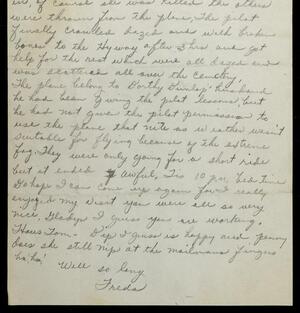 of course she was killed the others
were thrown from the plane, The pilot
finally crawled dazed and with broken
bones to the Hyway after 3hrs and got
help for the rest which were all dazed and
was scattered all over the Cemetery,
The plane belong to Dorthy Dunlap' husband
he had been giving the pilot lessons, but
he had not gave the pilot permission to
use the plane that nite as weather wasn't
suitable for flying because of the extreme
fog. They were only going for a short ride
but it ended awful, Tis 10 P.M. bed time
Perhaps I can come up again for I really
enjoyed my visit you were all so very
nice, Gladys I guess you are working,
Haws Tom - Dip I guess is happy and penny
does she still nip at the mailmans fingers
ha! ha!
Well so long
Freda